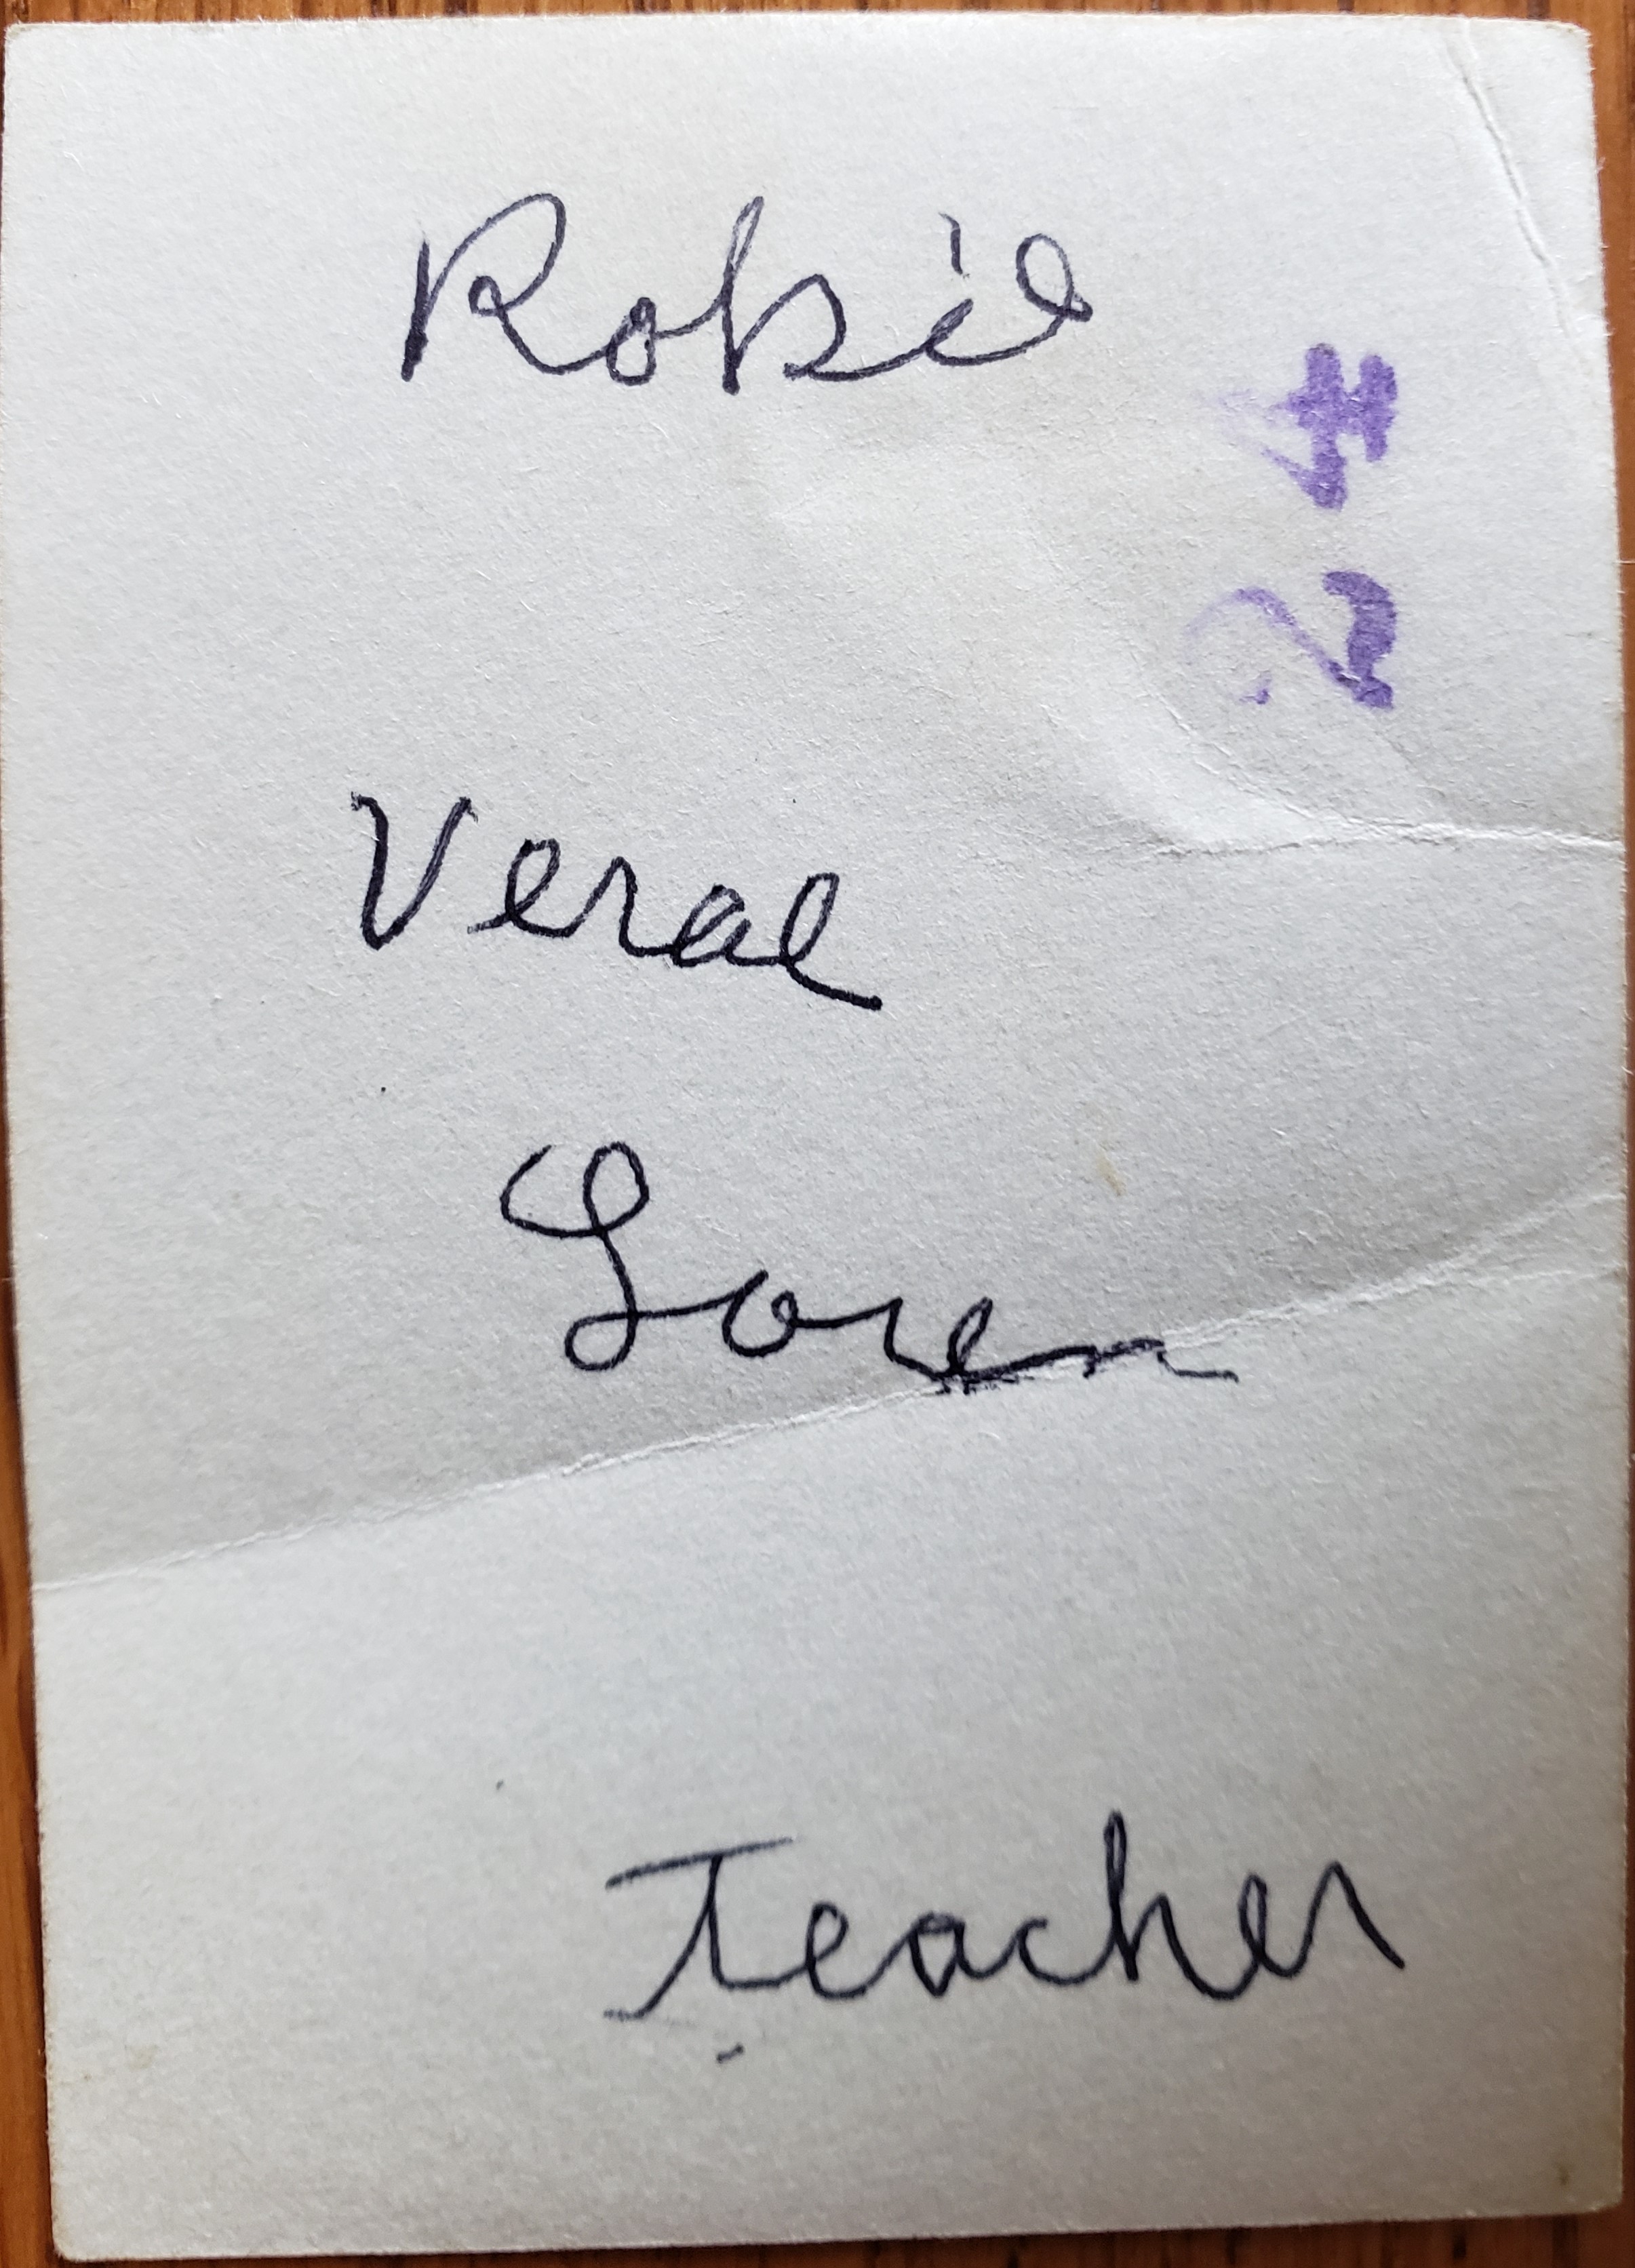 Rosie
24
Verae
Loren
Teacher